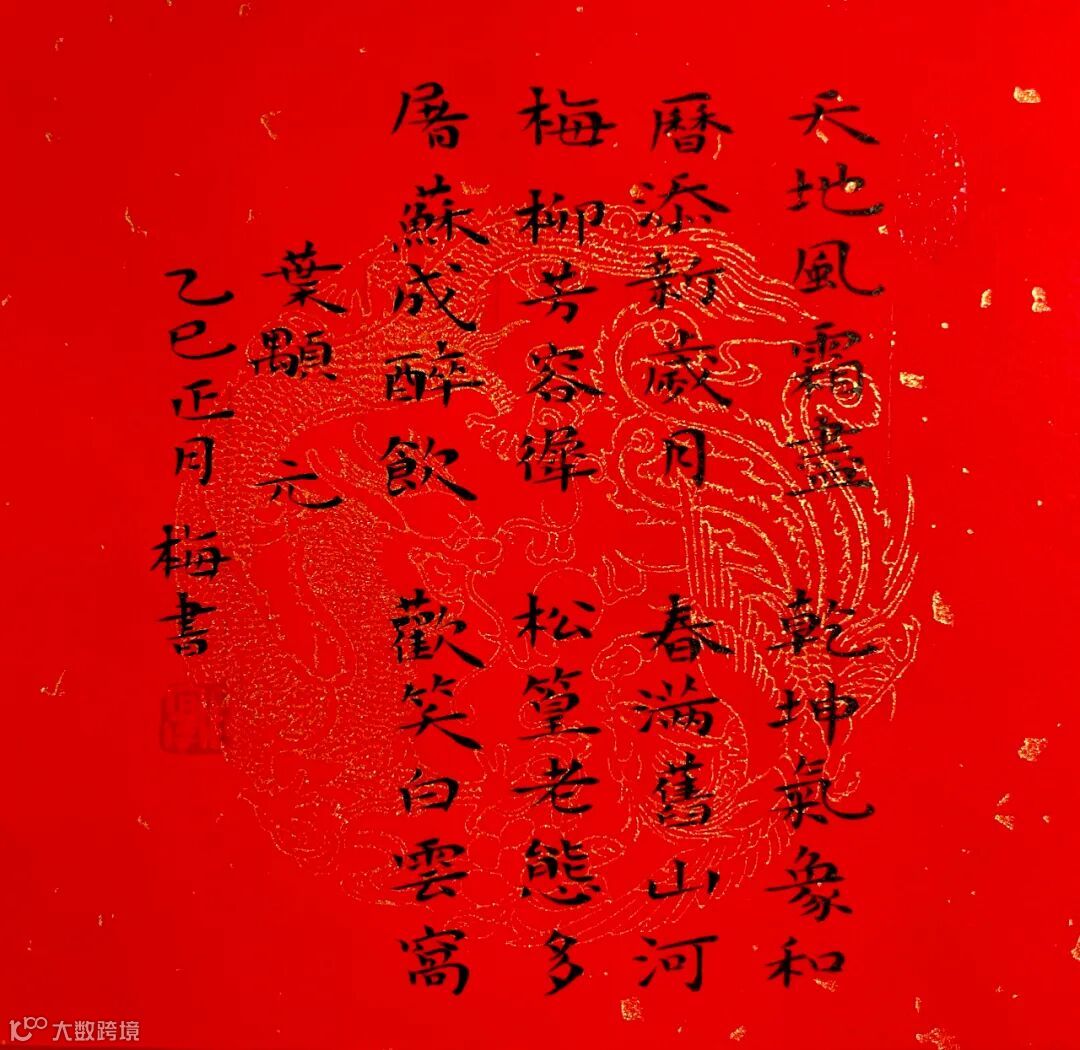 天地風霜盡 乾坤氣象和
曆添新歲月 春滿舊山河
梅柳芳容徲 松篁老態多
屠蘇成醉飲 歡笑白雲窩
葉顒 元
乙巳正月 梅書
大数跨境